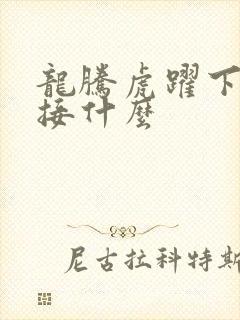 龍騰虎躍下
接什麼
尼古拉科特斯